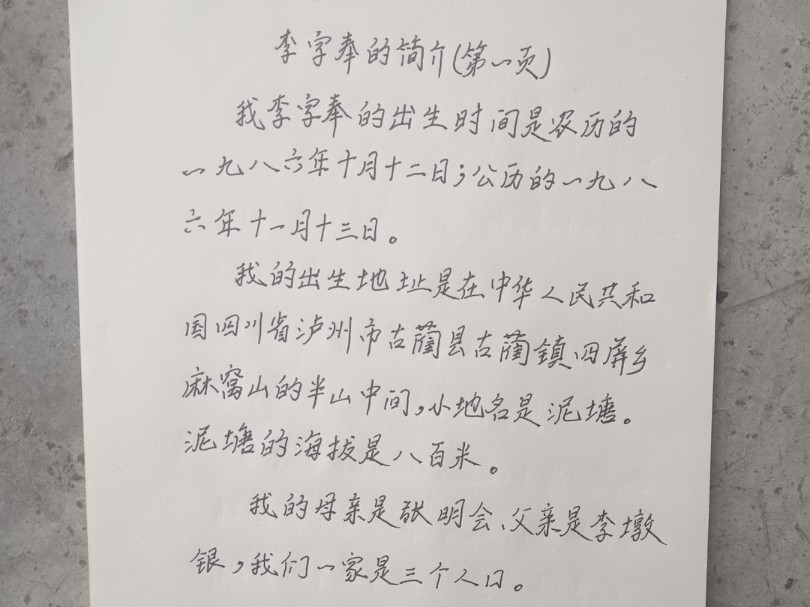 李字奉的简介(第一页)
我李字奉的出生时间是农历的
一九八六年十月十二日;公历的一九八
六年十一月十三日。
我的出生地址是在中华人民共和
国四川省泸州市古蔺县古蔺鎮四屏乡
麻窝山的半山中间,小地名是泥塘。
泥塘的海拔是八百米。
我的母亲是张明会、父亲是李墩
银,我们一家是三个人口。